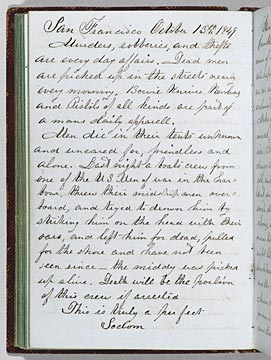 San Francisco October 13th 1849
Murders, robberies, and thefts
are every day affairs. Dead men
are picked up in the streets nearly
every morning. Bowie Knives,
and Pistols of all kinds are part of
a mans daily apparell.
Men die in their tents unknown
and uncared for, friendless and
alone. Last night a boats crew from
one of the U.S. Men of war in the har-
bour, threw their midshipman over-
board, and tryed to drown him by
striking him on the head with their
oars, and left him for dead, pulled
for the shore and have not been
seen since – the middy was picked
up alive. Death will be the portion
of this crew if arrested
This is truly a perfect
Sodom